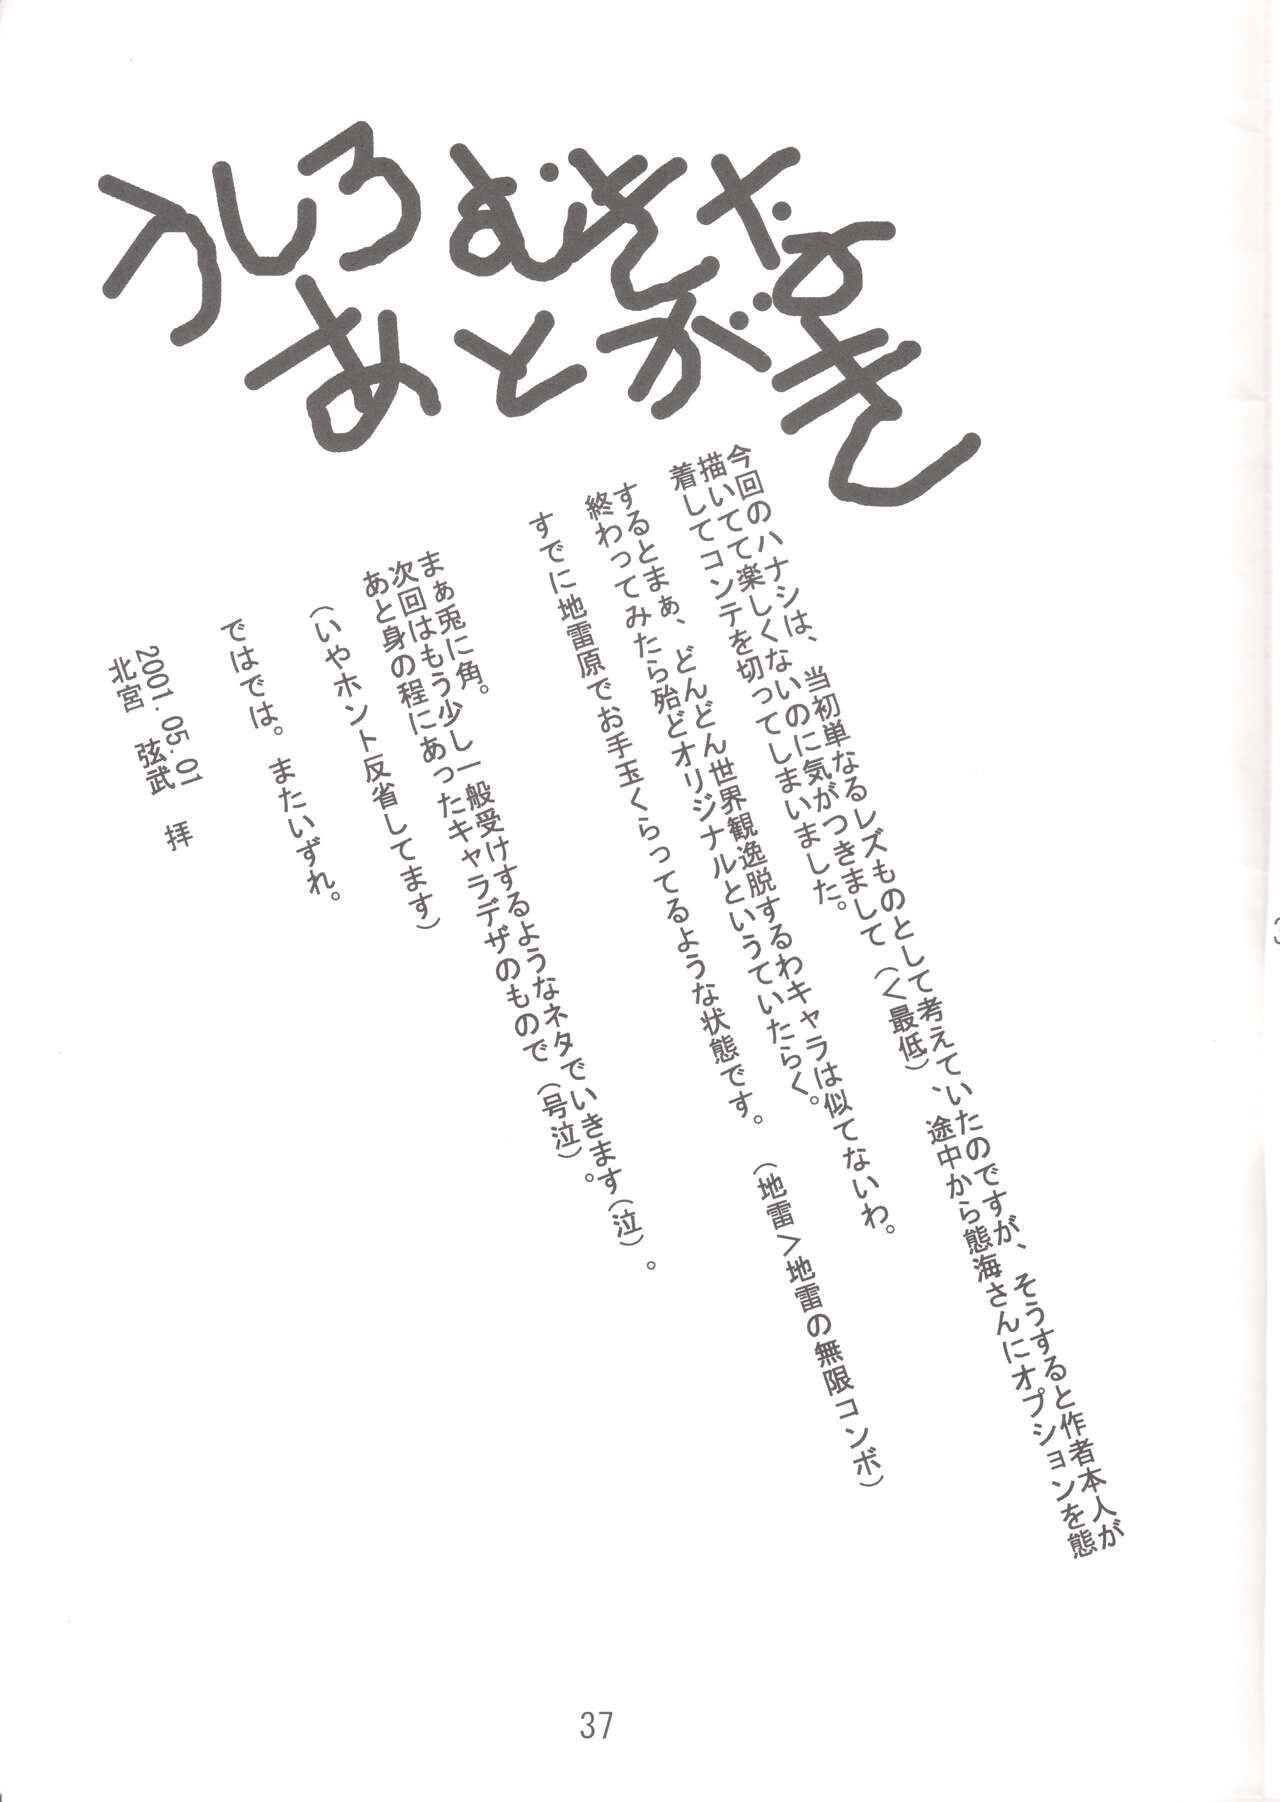 うしろむきな
あとがき
今回のハナシは、当初単なるレズものとして考えていたのですが、そうすると作者本人が
描いてて楽しくないのに気がつきまして(<最低)、途中から態海さんにオプションを態
着してコンテを切ってしまいました。
するとまぁ、どんどん世界観逸脱するわキャラは似てないわ。
終わってみたら殆どオリジナルというていたらく。
すでに地雷原でお手玉くらってるような状態です。(地雷>地雷の無限コンボ)
まぁ兎に角。
次回はもう少し一般受けするようなネタでいきます(泣)。
あと身の程にあったキャラデザのもので(号泣)。
(いやホント反省してます)
ではでは。またいずれ。
2001.05.01
北宮 弦武 拝
37